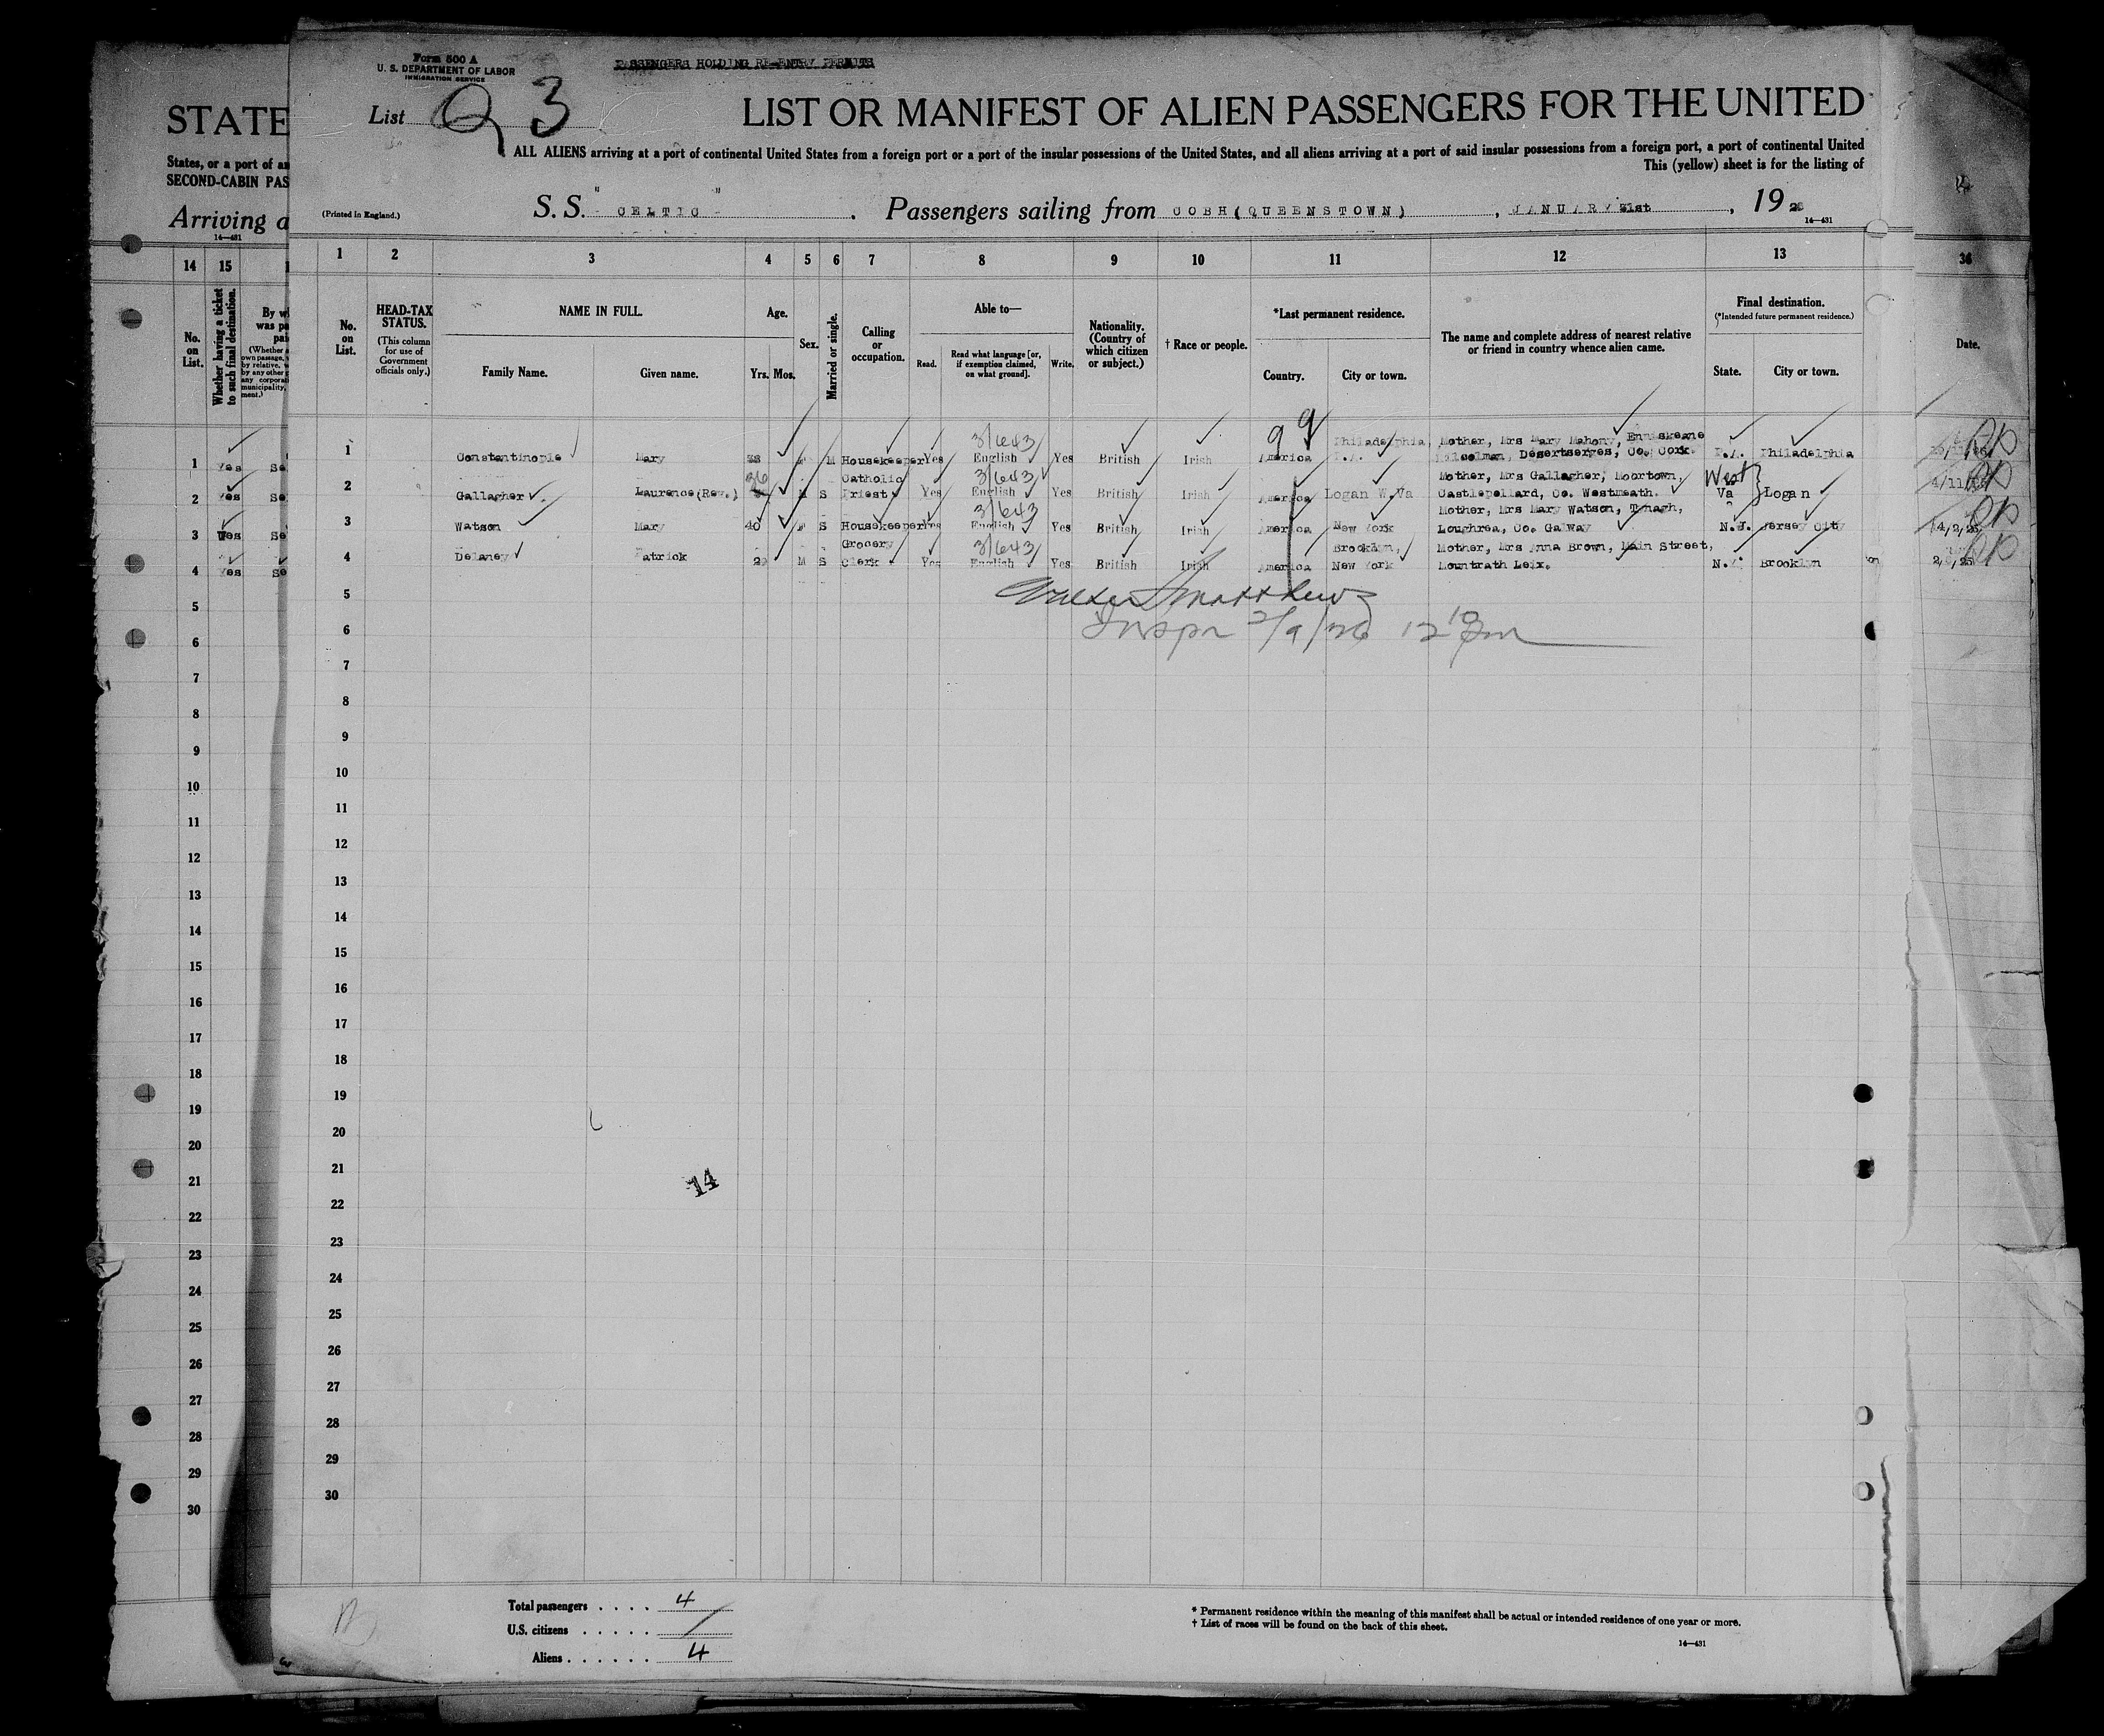 Form 500 A
U. S. DEPARTMENT OF LABOR
IMMIGRATION SERVICE
PASSENGERS HOLDING RE-ENTRY PERMITS
List 3
LIST OR MANIFEST OF ALIEN PASSENGERS FOR THE UNITED
ALL ALIENS arriving at a port of continental United States from a foreign port or a port of the insular possessions of the United States, and all aliens arriving at a port of said insular possessions from a foreign port, a port of continental United
This (yellow) sheet is for the listing of
(Printed in England.)
S. S. "CELTIC". Passengers sailing from COBH (QUEENSTOWN), JANUARY 31st, 19
14—431
STATE
States, or a port of an
SECOND-CABIN PAS
Arriving a
14—431
14 15
No. on List.
Whether having a ticket to such final destination.
1 2 3 4 5 6 7 8 9 10 11 12 13
36
No. on List.
HEAD-TAX STATUS.
(This column for use of Government officials only.)
NAME IN FULL.
Family Name. Given name.
Age.
Yrs. Mos.
Sex.
Married or single.
Calling or occupation.
Able to—
Read. Read what language [or, if exemption claimed, on what ground]. Write.
Nationality. (Country of which citizen or subject.)
† Race or people.
*Last permanent residence.
Country. City or town.
The name and complete address of nearest relative or friend in country whence alien came.
Final destination.
(*Intended future permanent residence.)
State. City or town.
Date.
1 Constantinople Mary M Housekeeper Yes 3/643 English Yes British Irish America Philadelphia, P.A. Mother, Mrs Mary Mahony, Enniskeane Desertserges, Co. Cork. P.A. Philadelphia
2 Gallagher Laurence (Rev.) 36 M S Catholic Priest Yes 3/643 English Yes British Irish America Logan W.Va Mother, Mrs Gallagher, Moortown, Castlepollard, Co. Westmeath. West Va Logan
3 Watson Mary 40 F S Housekeeper Yes 3/643 English Yes British Irish America New York Mother, Mrs Mary Watson, Tynagh, Loughrea, Co. Galway N.J. Jersey City
4 Delaney Patrick 29 M S Grocery Clerk Yes 3/643 English Yes British Irish America Brooklyn, New York Mother, Mrs Anna Brown, Main Street, Mountrath Leix. N.Y. Brooklyn
99
Walter Matthews
Inspr 2/9/26 12 10 pm
5
6
7
8
9
10
11
12
13
14
15
16
17
18
19
20
21
22
23
24
25
26
27
28
29
30
14
1 Yes Se
2 Yes Se
3 Yes Se
4 Yes Se
5
6
7
8
9
10
11
12
13
14
15
16
17
18
19
20
21
22
23
24
25
26
27
28
29
30
Total passengers . . . . 4
U.S. citizens . . . . . /
Aliens . . . . . . 4
* Permanent residence within the meaning of this manifest shall be actual or intended residence of one year or more.
† List of races will be found on the back of this sheet.
14—431